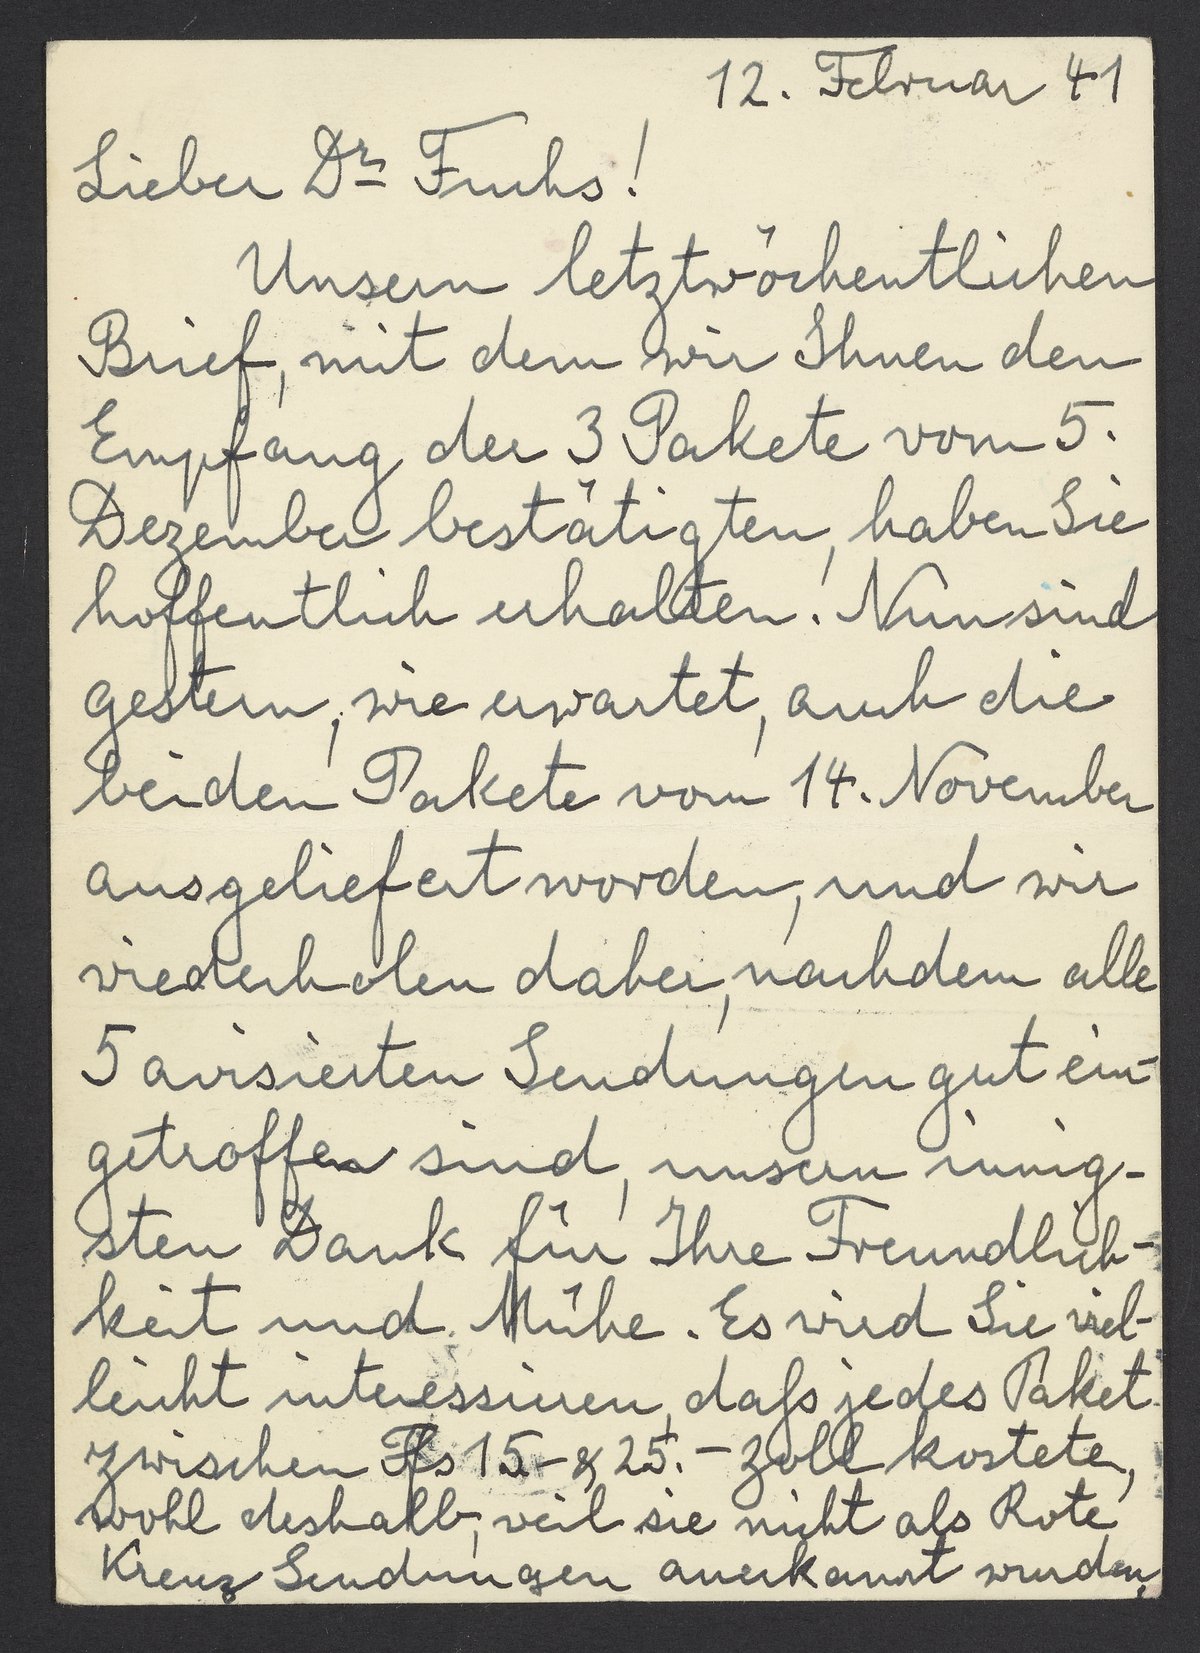 12. Februar 41
Lieber Dr Fuchs!
Unsern letztwöchentlichen
Brief, mit dem wir Ihnen den
Empfang der 3 Pakete vom 5.
Dezember bestätigten, haben Sie
hoffentlich erhalten. Nun sind
gestern, wie erwartet, auch die
beiden Pakete vom 14. November
ausgeliefert worden, und wir
wiederholen daher, nachdem alle
5 avisierten Sendungen gut ein-
getroffen sind, unsern innig-
sten Dank für Ihre Freundlich-
keit und Mühe. Es wird Sie viel-
leicht interessieren, dass jedes Paket
zwischen Ffs 15.- & 25.- Zoll kostete,
wohl deshalb, weil sie nicht als Rote
Kreuz Sendungen anerkannt wurden,